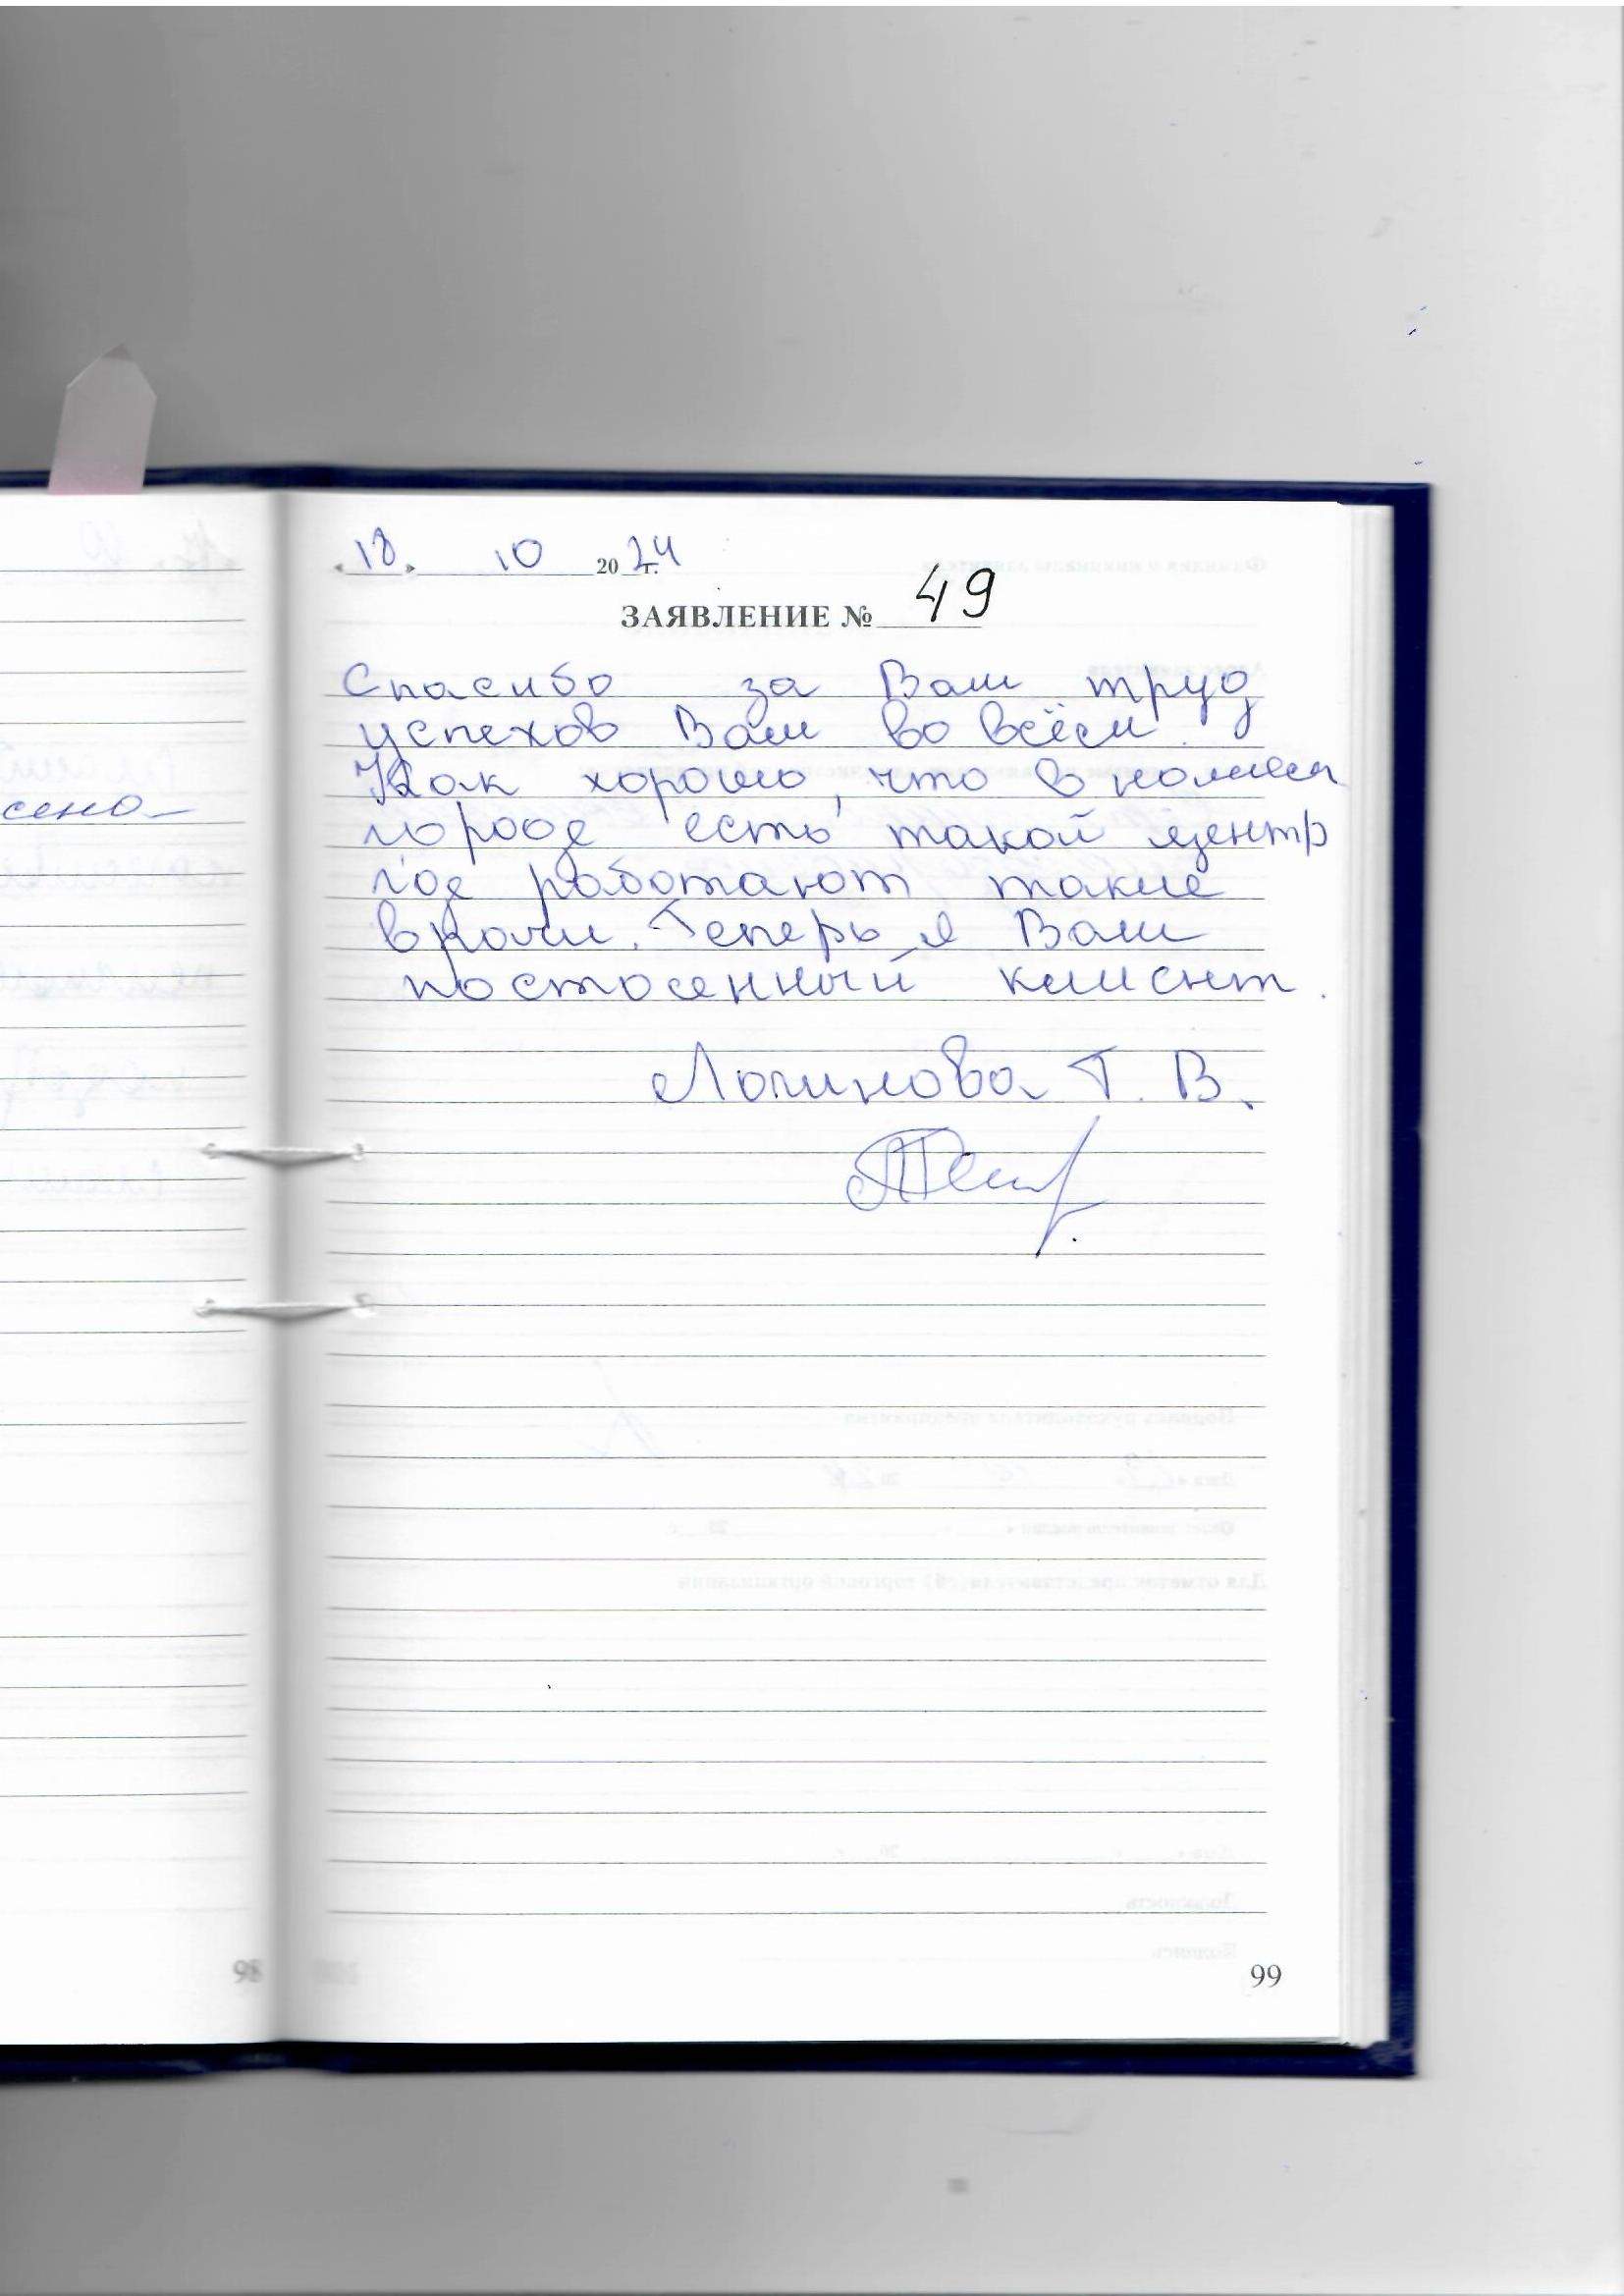 «18» 10 2024 г.
ЗАЯВЛЕНИЕ № 49
Спасибо за Ваш труд
успехов Вам во всём.
Как хорошо, что в нашем
городе есть такой центр
где работают такие
врачи. Теперь я Ваш
постоенный клиент.
Логинова Т. В.
сено-
98
99